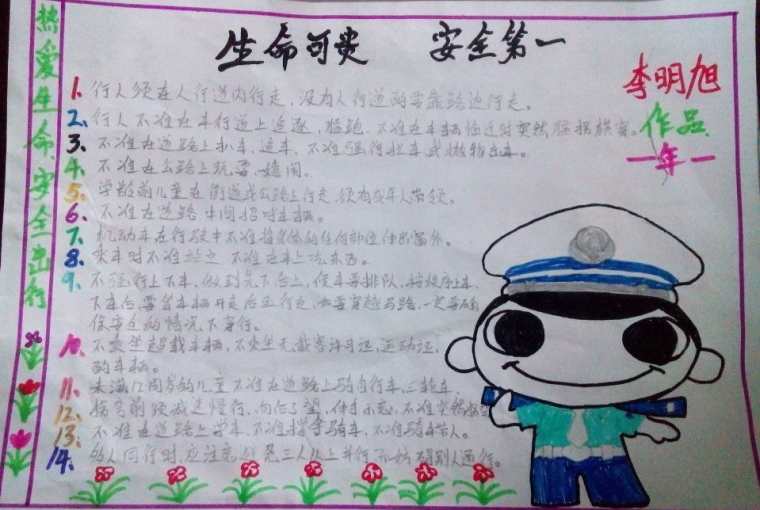 热爱生命安全出行
生命可贵 安全第一
李明旭
作品
一年一
1、行人须在人行道内行走，没有人行道的要靠路边行走。
2、行人不准在车行道上追逐，猛跑，不准在车辆临近时突然猛拐横穿。
3、不准在道路上扒车、追车、不准强行拦车或抛物击车。
4、不准在公路上玩耍、嬉闹。
5、学龄前儿童在街道或公路上行走，须有成年人带领。
6、不准在道路中间招呼车辆。
7、机动车在行驶中不准将身体的任何部位伸出窗外。
8、乘车时不准站立 不准在车上吃东西。
9、不强行上下车，做到先下后上，候车要排队，按秩序上车，
下车后要等车辆开走后再行走，如要穿越马路，一定要在确
保安全的情况下穿行。
10、不乘坐超载车辆，不乘坐无载客许可证，运动证，
的车辆。
11、未满12周岁的儿童不准在道路上骑自行车、三轮车、
12、拐弯前须减速慢行，向后了望，伸手示意，不准突然
13、不准在道路上学车，不准撑伞骑车，不准骑车带人。
14、多人同行时应注意 三人以上并行 别人通行。